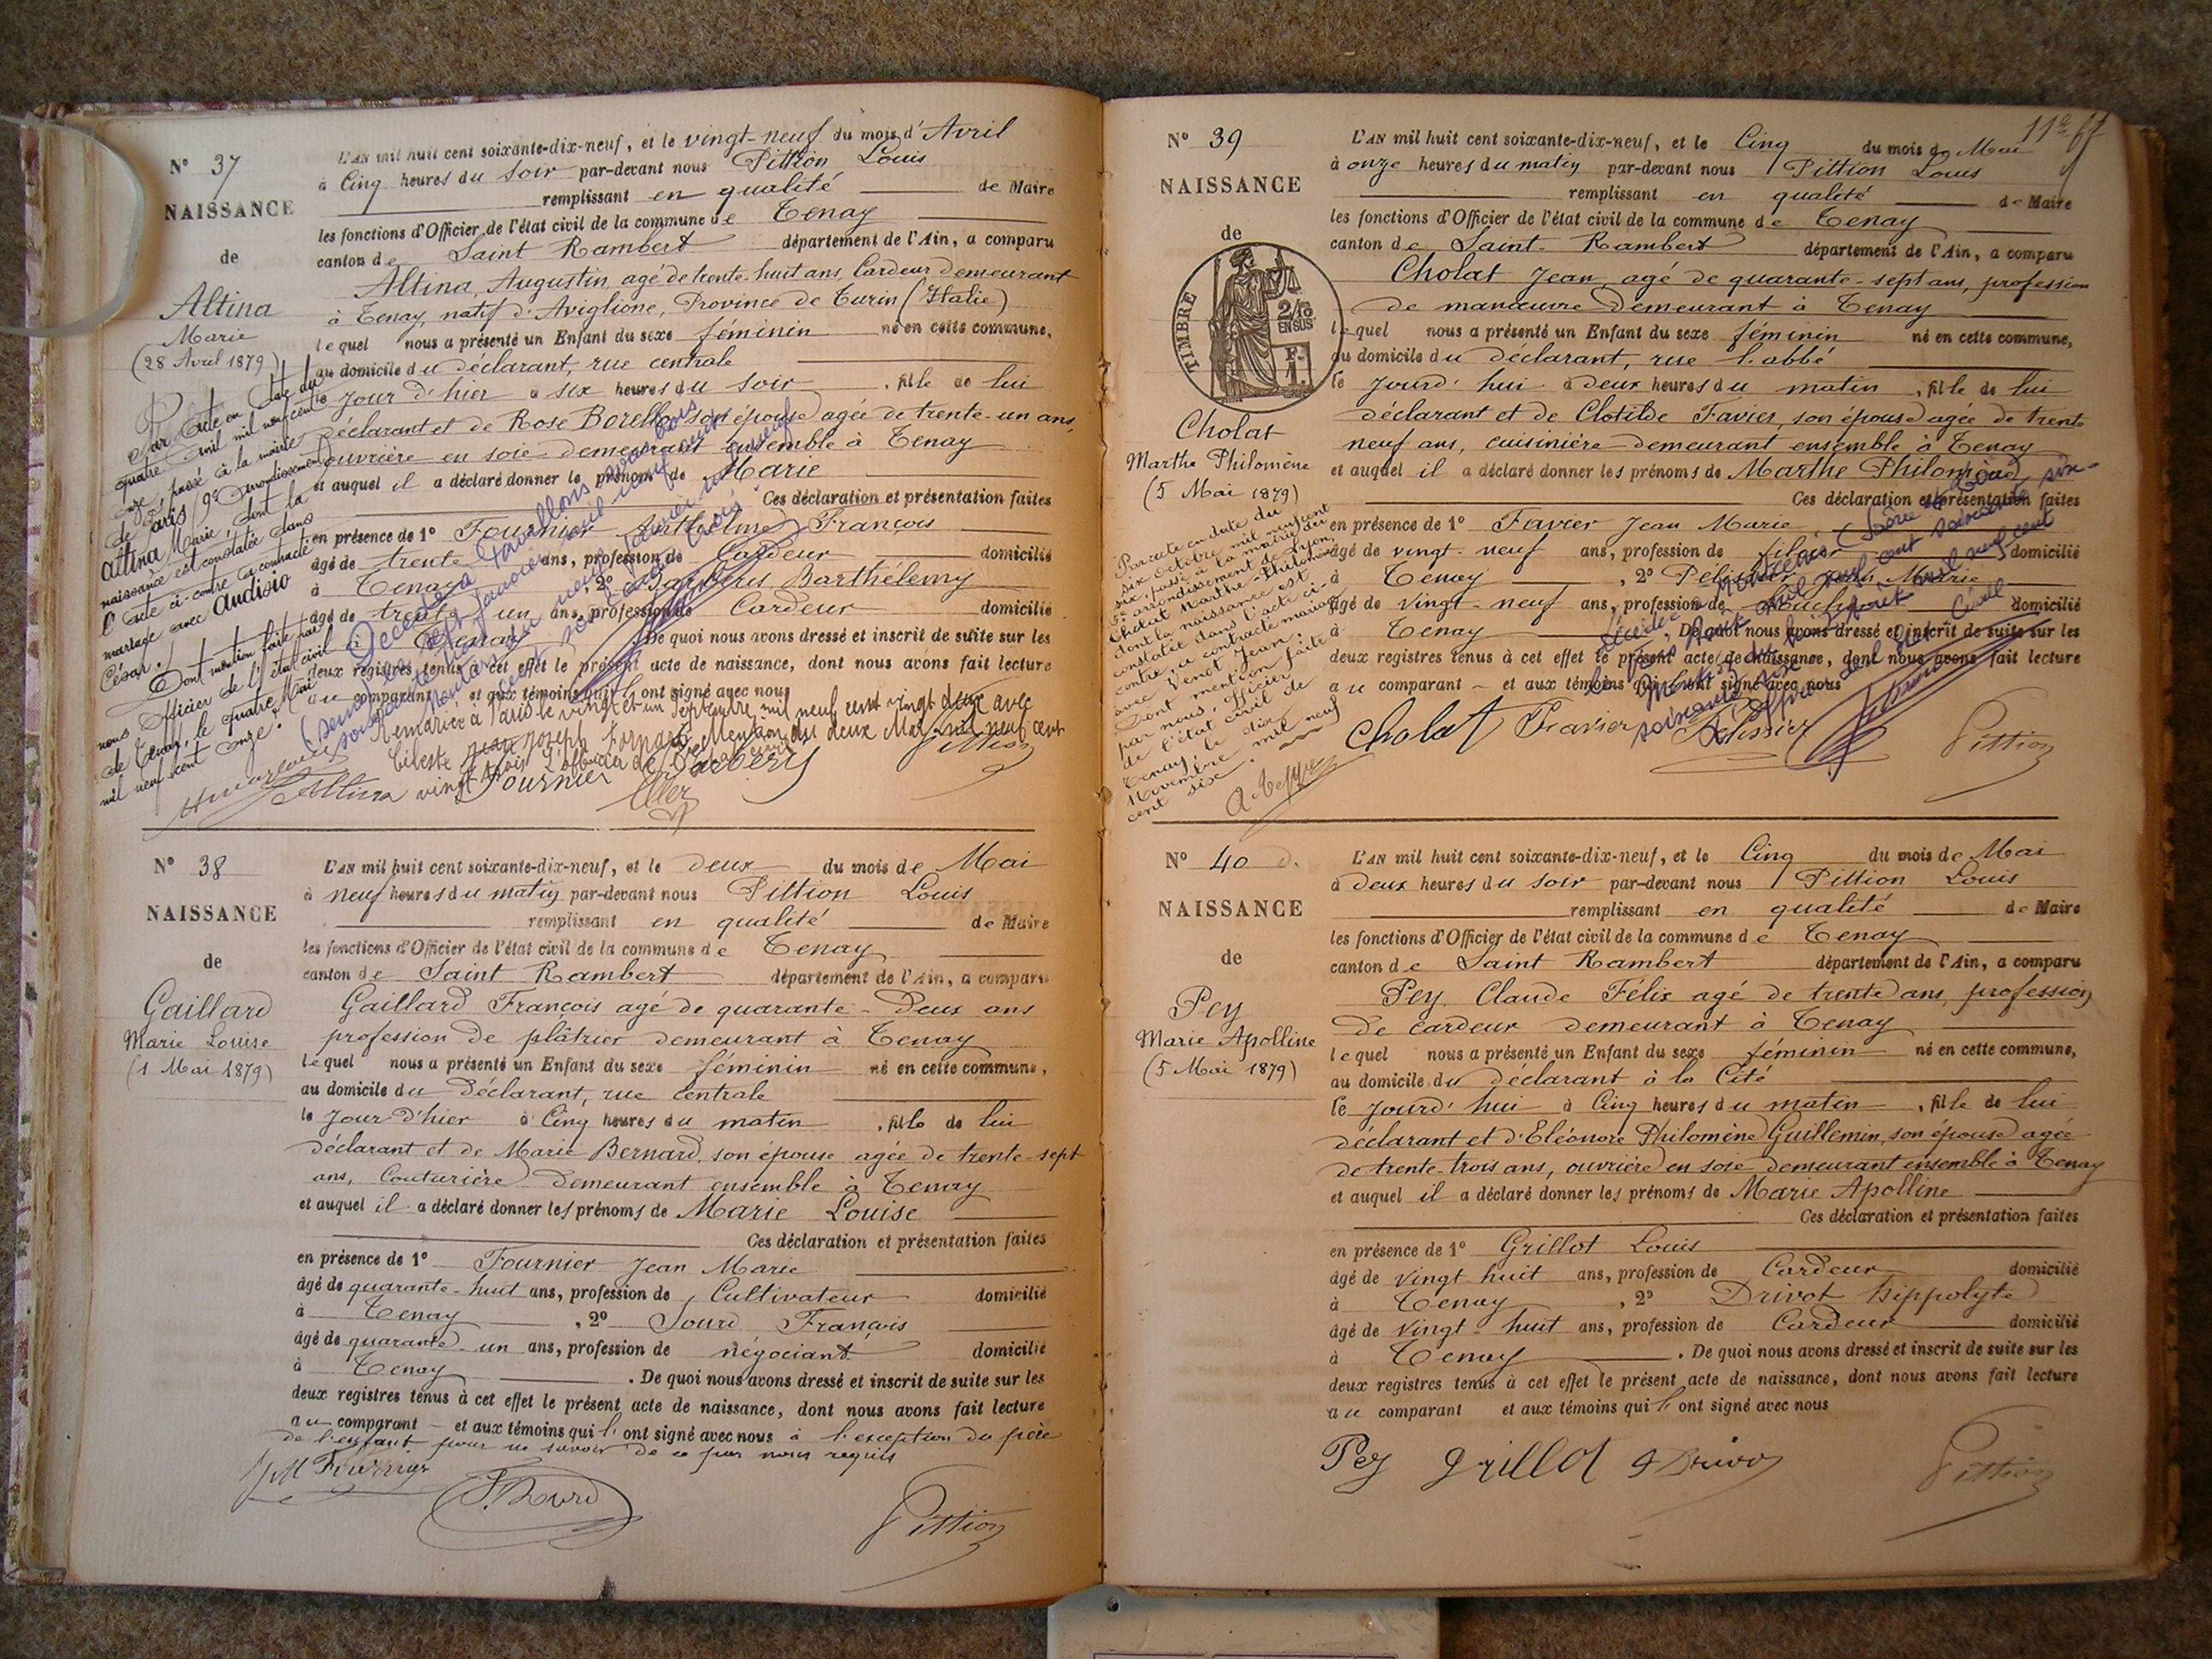 N° 37
NAISSANCE
de
Altina
Marie
(28 Avril 1879)
L'AN mil huit cent soixante-dix-neuf, et le vingt-neuf du mois d'Avril
à Cinq heures du soir par-devant nous Pittion Louis
remplissant en qualité de Maire
les fonctions d'Officier de l'état civil de la commune de Tenay
canton de Saint Rambert département de l'Ain, a comparu
Altina, Augustin, agé de trente-huit ans, Cardeur demeurant
à Tenay, natif d'Aviglione, Province de Turin (Italie)
lequel nous a présenté un Enfant du sexe féminin né en cette commune,
au domicile du déclarant, rue centrale
jour d'hier à six heures du soir, fille de lui
déclarant et de Rose Borello son épouse agée de trente-un ans,
ouvrière en soie demeurant ensemble à Tenay
et auquel il a déclaré donner le prénom de Marie
Ces déclaration et présentation faites
en présence de 1° Fournier Anthelme François
âgé de trente ans, profession de Cardeur domicilié
à Tenay, 2° Barberis Barthélemy
âgé de trente un ans, profession de Cardeur domicilié
à Tenay. De quoi nous avons dressé et inscrit de suite sur les
deux registres tenus à cet effet le présent acte de naissance, dont nous avons fait lecture
au comparant et aux témoins qui l'ont signé avec nous
Par acte en date du
quatre Avril mil neuf cent
onze, passé à la mairie
de Paris, 9e arrondissement
Altina Marie, dont la
naissance est constatée dans
l'acte ci-contre a contracté
mariage avec Audisio
César.
Dont mention faite par
nous officier de l'état civil
de Tenay, le quatre Mai
mil neuf cent onze.
Remariée à Paris le vingt et un Septembre mil neuf cent vingt deux avec
Céleste Jean Joseph Fornas Mention du deux Mai mil neuf cent
vingt trois L'officier de l'Etat civil
Altina Fournier Barberis Pittion
N° 38
NAISSANCE
de
Gaillard
Marie Louise
(1 Mai 1879)
L'AN mil huit cent soixante-dix-neuf, et le deux du mois de Mai
à neuf heures du matin par-devant nous Pittion Louis
remplissant en qualité de Maire
les fonctions d'Officier de l'état civil de la commune de Tenay
canton de Saint Rambert département de l'Ain, a comparu
Gaillard François agé de quarante-deux ans
profession de plâtrier demeurant à Tenay
lequel nous a présenté un Enfant du sexe féminin né en cette commune,
au domicile du déclarant, rue centrale
le jour d'hier à Cinq heures du matin, fille de lui
déclarant et de Marie Bernard, son épouse agée de trente-sept
ans, Couturière demeurant ensemble à Tenay
et auquel il a déclaré donner les prénoms de Marie Louise
Ces déclaration et présentation faites
en présence de 1° Fournier Jean Marie
âgé de quarante-huit ans, profession de Cultivateur domicilié
à Tenay, 2° Sourd François
âgé de quarante-un ans, profession de négociant domicilié
à Tenay. De quoi nous avons dressé et inscrit de suite sur les
deux registres tenus à cet effet le présent acte de naissance, dont nous avons fait lecture
au comparant et aux témoins qui l'ont signé avec nous à l'exception du père
de l'enfant pour ne savoir de ce par nous requis
JM Fournier F. Sourd Pittion
11e f
N° 39
NAISSANCE
de
TIMBRE
2/10
EN SUS
F.
1
Cholat
Marthe Philomène
(5 Mai 1879)
L'AN mil huit cent soixante-dix-neuf, et le Cinq du mois de Mai
à onze heures du matin par-devant nous Pittion Louis
remplissant en qualité de Maire
les fonctions d'Officier de l'état civil de la commune de Tenay
canton de Saint-Rambert département de l'Ain, a comparu
Cholat Jean, agé de quarante-sept ans, profession
de manœuvre demeurant à Tenay
lequel nous a présenté un Enfant du sexe féminin né en cette commune,
au domicile du déclarant, rue l'abbé
le jourd'hui à deux heures du matin, fille de lui
déclarant et de Clotilde Favier, son épouse agée de trente
neuf ans, cuisinière demeurant ensemble à Tenay
et auquel il a déclaré donner les prénoms de Marthe Philomène
Ces déclaration et présentation faites
en présence de 1° Favier Jean Marie
âgé de vingt-neuf ans, profession de domicilié
à Tenay, 2° Pélissier Jean Marie
âgé de vingt-neuf ans, profession de domicilié
à Tenay. De quoi nous avons dressé et inscrit de suite sur les
deux registres tenus à cet effet le présent acte de naissance, dont nous avons fait lecture
au comparant et aux témoins qui l'ont signé avec nous
Par acte en date du
six Octobre mil neuf cent
six, passé à la mairie du
5e arrondissement de Lyon,
Cholat Marthe-Philomène
dont la naissance est
constatée dans l'acte ci-
contre, a contracté mariage
avec Venet Jean.
Dont mention faite
par nous, officier
de l'état civil de
Tenay, le dix
Novembre mil neuf
cent six.
Cholat Favier Pélissier Pittion
N° 40
NAISSANCE
de
Pey
Marie Apolline
(5 Mai 1879)
L'AN mil huit cent soixante-dix-neuf, et le Cinq du mois de Mai
à deux heures du soir par-devant nous Pittion Louis
remplissant en qualité de Maire
les fonctions d'Officier de l'état civil de la commune de Tenay
canton de Saint Rambert département de l'Ain, a comparu
Pey Claude Félix agé de trente ans, profession
de cardeur demeurant à Tenay
lequel nous a présenté un Enfant du sexe féminin né en cette commune,
au domicile du déclarant à la Cité
le jourd'hui à Cinq heures du matin, fille de lui
déclarant et d'Eléonore Philomène Guillemin, son épouse agée
de trente-trois ans, ouvrière en soie demeurant ensemble à Tenay
et auquel il a déclaré donner les prénoms de Marie Apolline
Ces déclaration et présentation faites
en présence de 1° Grillot Louis
âgé de vingt huit ans, profession de Cardeur domicilié
à Tenay, 2° Drivot Hippolyte
âgé de vingt-huit ans, profession de Cardeur domicilié
à Tenay. De quoi nous avons dressé et inscrit de suite sur les
deux registres tenus à cet effet le présent acte de naissance, dont nous avons fait lecture
au comparant et aux témoins qui l'ont signé avec nous
Pey Grillot Drivot Pittion